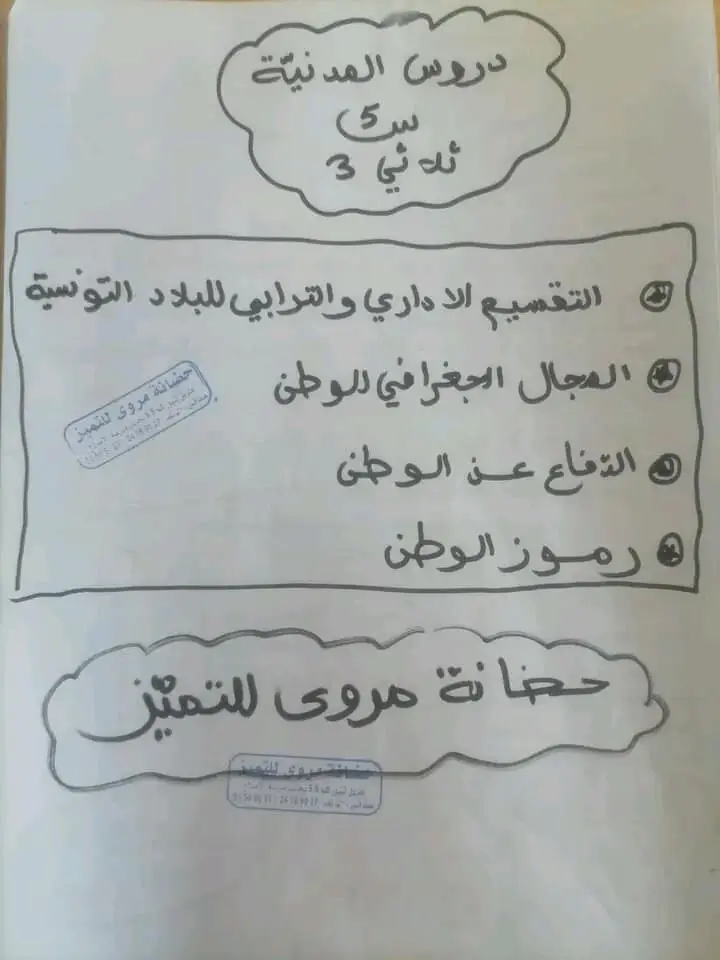 دروس المدنيّة
س5
ثلاثي 3
التقسيم الاداري والترابي للبلاد التونسية
المجال الجغرافي للوطن
حضانة مروى للتميز
الدّفاع عن الوطن
رموز الوطن
حضانة مروى للتميّز
حضانة مروى للتميز